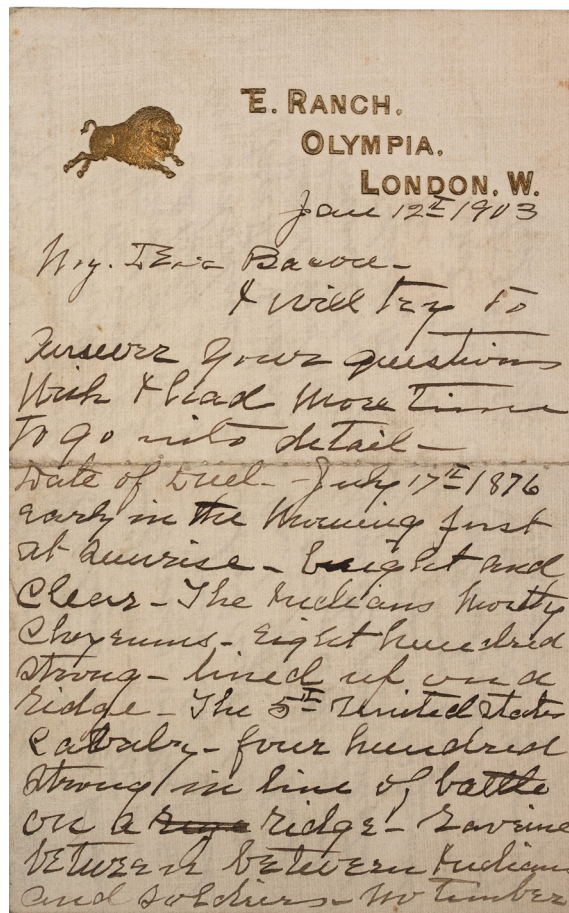 E. RANCH.
OLYMPIA.
LONDON. W.
Jan 12th 1903
My. Dear Bacon-
I will try to
Answer your questions
Wish I had more time
to go into detail-
Date of Duel- July 17th/1876
early in the morning just
at sunrise- bright and
clear- The Indians mostly
Cheyenns- Eight hundred
strong- lined up on a
ridge- The 5th United States
Cavalry- four hundred
strong in line of battle
on a ridge- Ravine
between between Indians
and soldiers- No timber